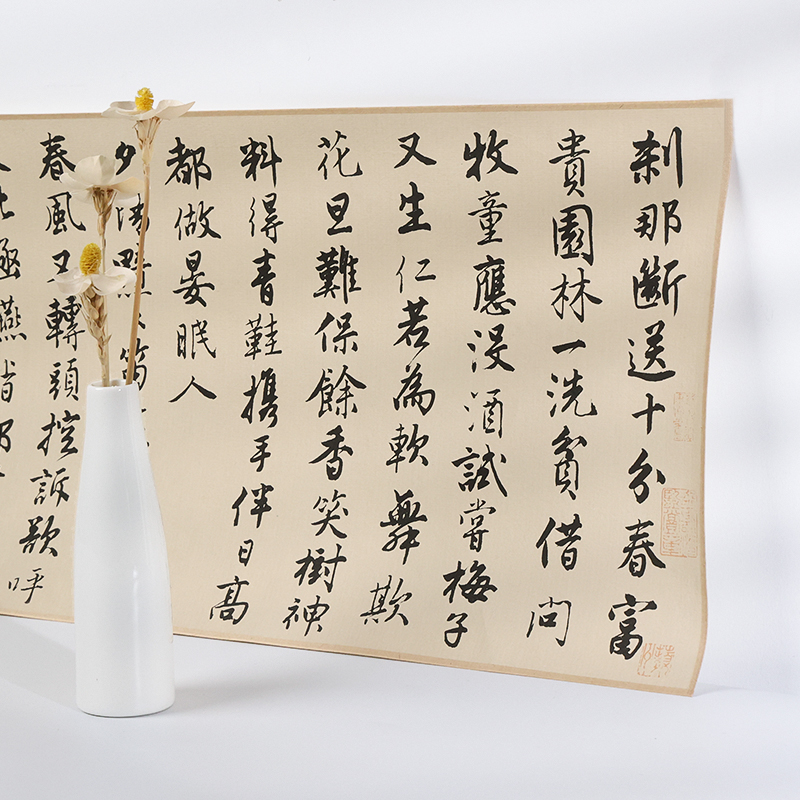 刹那斷送十分春富
貴園林一洗貧借問
牧童應没酒試嘗梅子
又生仁若為軟舞欺
花旦難保餘香笑樹神
料得青鞋携手伴日高
都做晏眠人
春風又轉頭控訴呼
燕